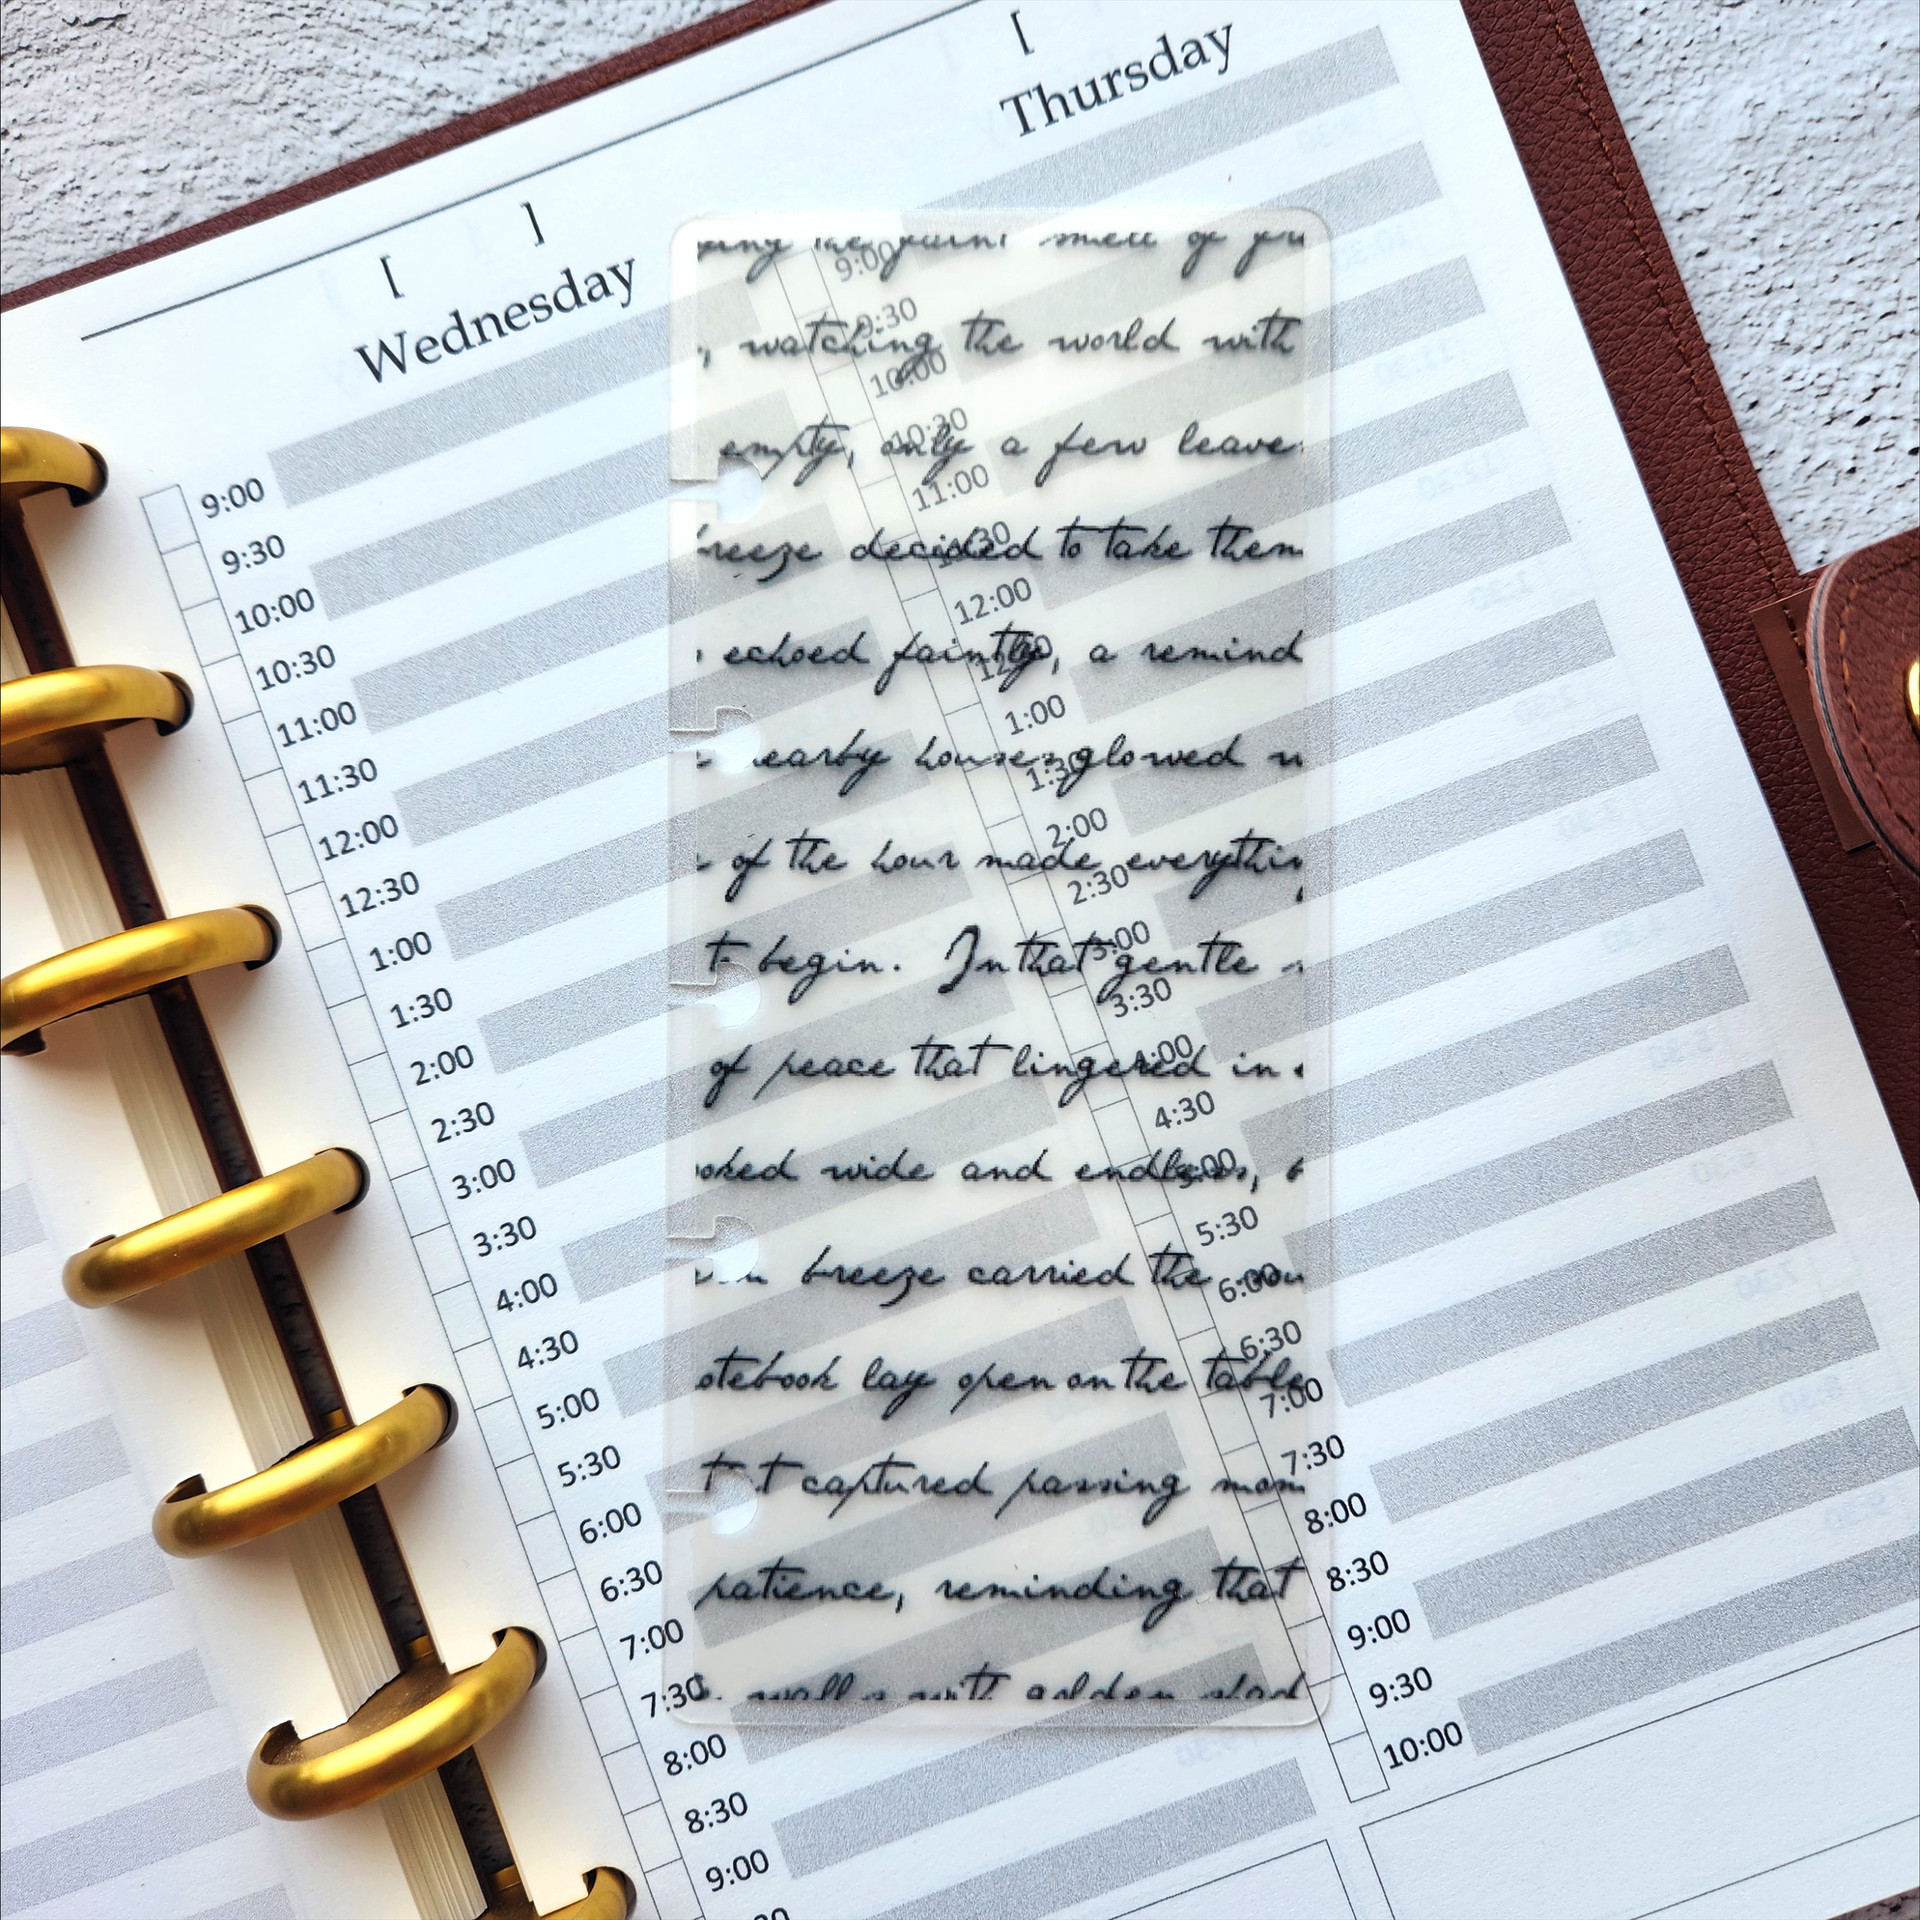 [
Thursday
[ ]
Wednesday
9:00
9:30
10:00
10:30
11:00
11:30
12:00
12:30
1:00
1:30
2:00
2:30
3:00
3:30
4:00
4:30
5:00
5:30
6:00
6:30
7:00
7:30
8:00
8:30
9:00
9:00
9:30
10:00
10:30
11:00
11:30
12:00
12:30
1:00
1:30
2:00
2:30
3:00
3:30
4:00
4:30
5:00
5:30
6:00
6:30
7:00
7:30
8:00
8:30
9:00
9:30
10:00
smell of
, watching the world with
empty, only a few leave
reeze decided to take them
echoed faintly, a remind
nearby houses glowed
of the hour made everythin
t begin. In that gentle
of peace that lingered in
ooked wide and endless,
breeze carried the
otebook lay open on the table
captured passing mom
patience, reminding that
walls with golden shad